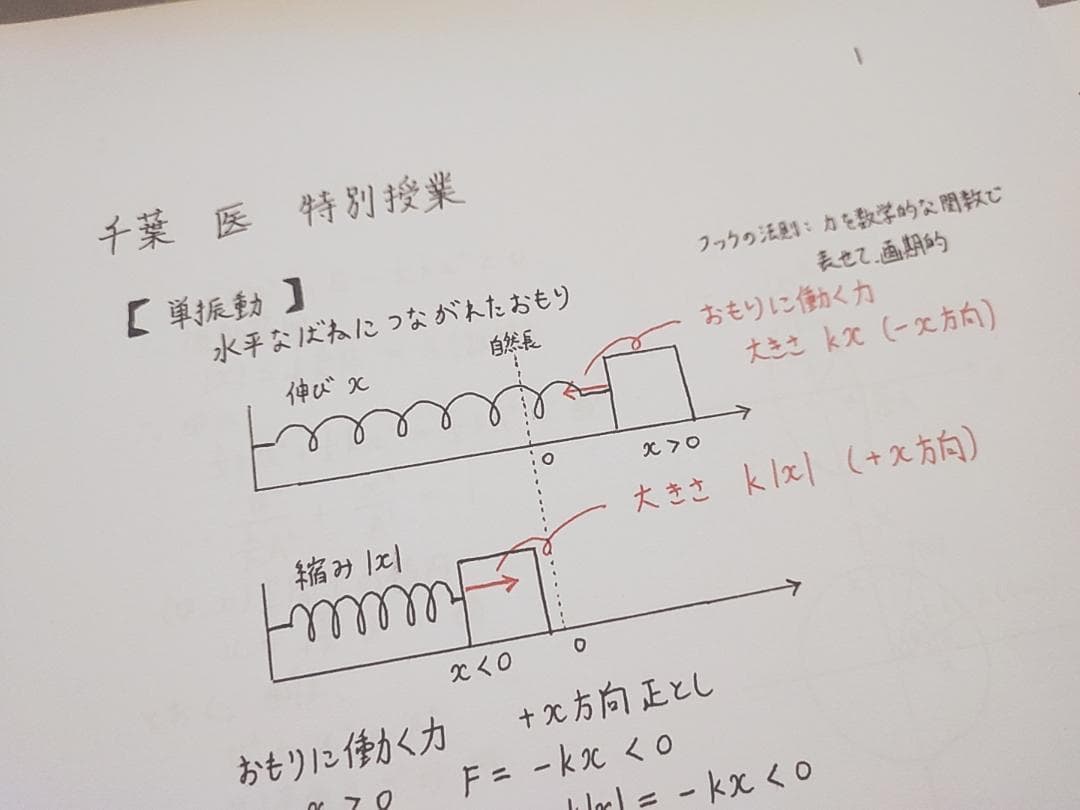 1
千葉 医 特別授業
フックの法則: 力を数学的な関数で
表せて、画期的
【 単振動 】
水平なばねにつながれたおもり
おもりに働く力
大きさ kx (-x方向)
自然長
伸び x
0
x>0
大きさ k|x| (+x方向)
縮み |x|
x<0
0
おもりに働く力 +x方向正とし
x>0 F=-kx<0
k|x|=-kx<0